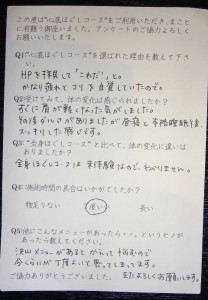 この度は"心底ほぐしコース"をご利用いただき、まこと
に有難う御座いました。アンケートのご協力よろしく
お願いします。
Q1"心底ほぐしコース"を選ばれた理由を教えて下さ
い。
HPを拝見して「これだ!」と。
かなり疲れとコリを自覚していたので。
Q2受けてみて、体の変化は感じられましたか?
すぐに肩が軽くなった気がしました。
その後ダルさがありましたが昼寝と半格睡眠後、
スッキリした感じです。
Q3"全身ほぐしコース"と比べて、体の変化に違いは
ありましたか?
全身ほぐしコースは未体験なので、わかりません。
Q4 施術時間の具合はいかがでしたか?
物足りない 良い 長い
Q5他にこんなメニューがあったら・・。というモノが
あったら教えてください。
沢山メニューがあるとかえって悩むので
今くらいが丁度よいと思ってしまいます。
ご協力ありがとうございました。 またよろしくお願いします。